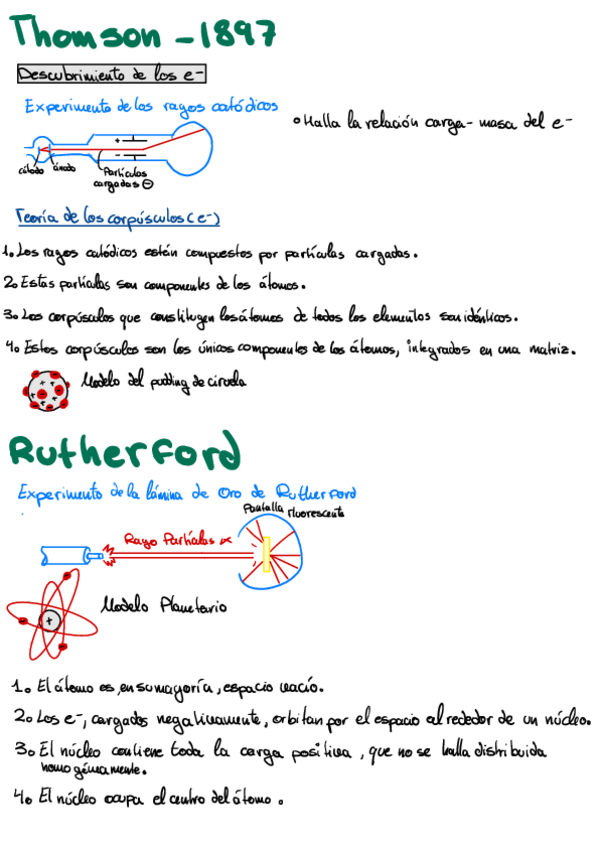 Thomson - 1897
Descubrimiento de los e-
Experimento de los rayos catódicos
• Halla la relación carga - masa del e-
+
-
cátodo ánodo Partículas
cargadas ⊖
Teoría de los corpúsculos (e-)
1. Los rayos catódicos están compuestos por partículas cargadas.
2. Estas partículas son componentes de los átomos.
3. Los corpúsculos que constituyen los átomos de todos los elementos son idénticos.
4. Estos corpúsculos son los únicos componentes de los átomos, integrados en una matriz.
Modelo del pudding de ciruela
Rutherford
Experimento de la lámina de Oro de Rutherford
Pantalla Fluorescente
Rayo Partículas α
Modelo Planetario
+
1. El átomo es, en su mayoría, espacio vacío.
2. Los e-, cargados negativamente, orbitan por el espacio alrededor de un núcleo.
3. El núcleo contiene toda la carga positiva, que no se halla distribuida
homogéneamente.
4. El núcleo ocupa el centro del átomo.